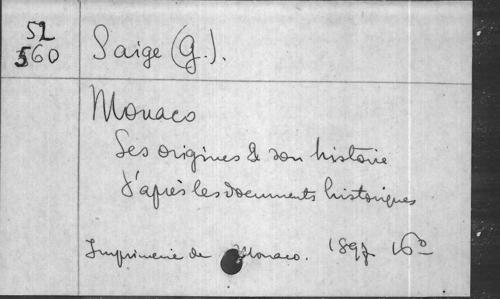 52
560
Saige (G.).
Monaco
Ses origines & son histoire
d'après les documents historiques
Imprimerie de Monaco. 1897 16°